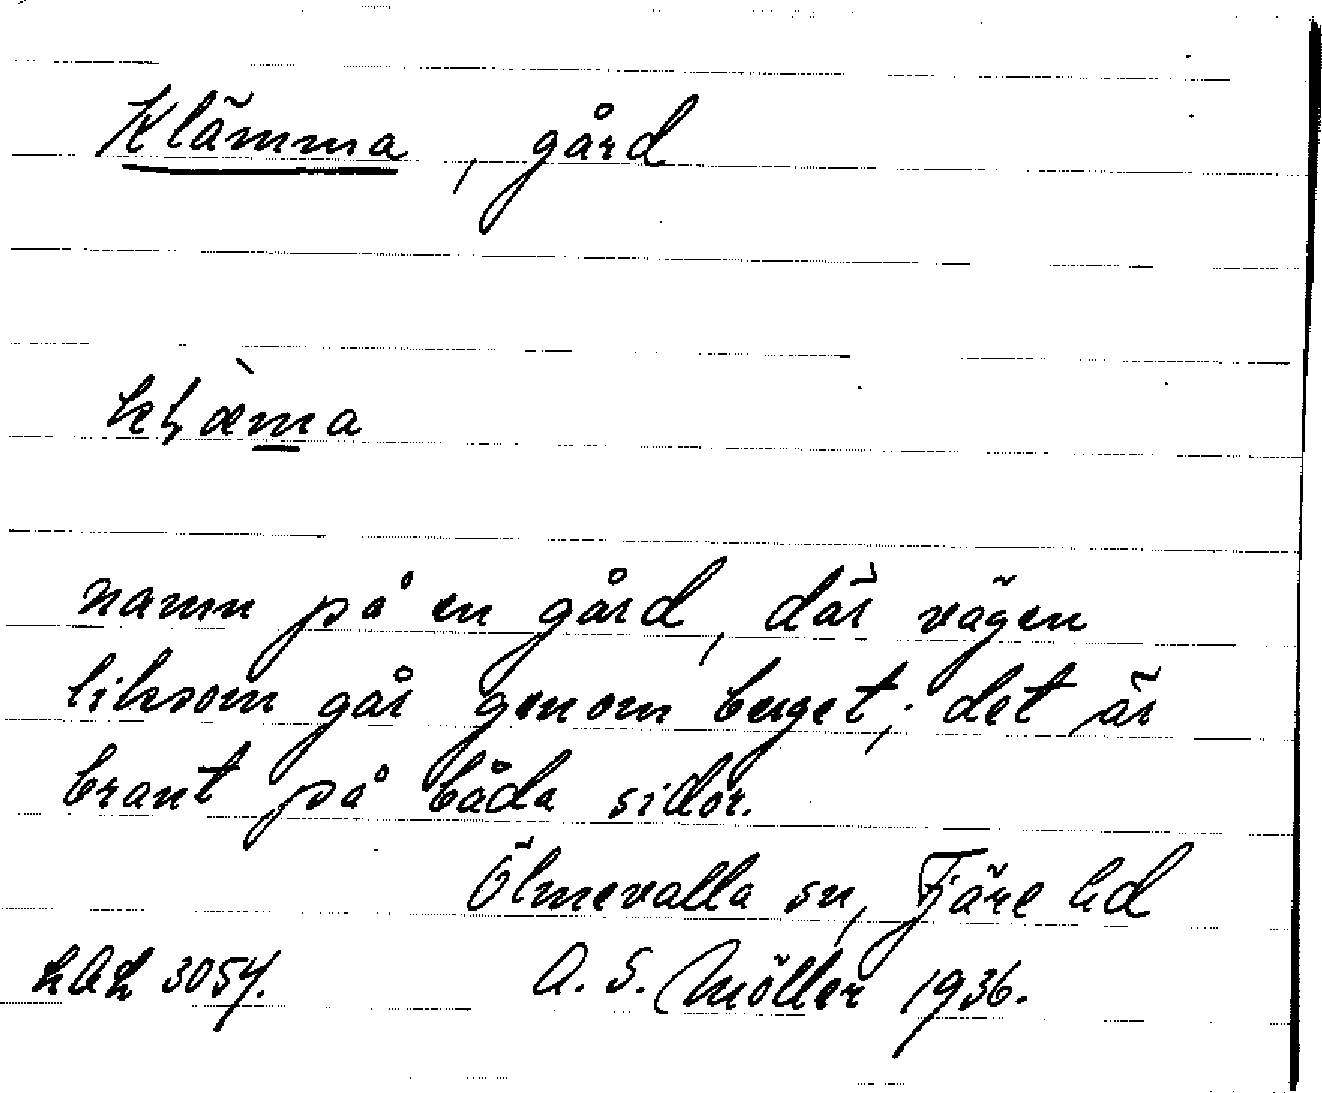 Klämma, gård
namn på en gård, där vägen
liksom går genom berget; det är
brant på båda sidor.
Ölmevalla sn, Fjäre hd
3054. A. S. Möller 1936.